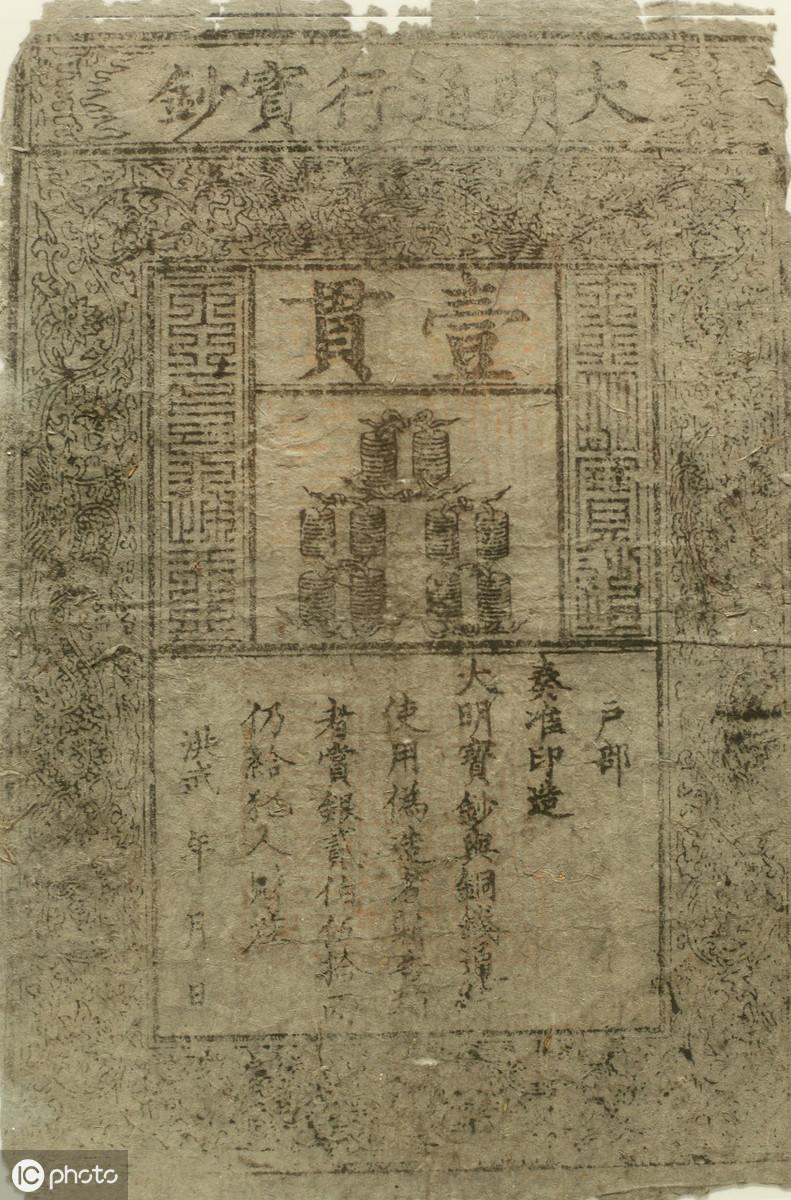 大明通行寶鈔
壹貫
大明寶鈔
天下通行
戶部
奏准印造
大明寶鈔與銅錢通行
使用偽造者斬告捕
者賞銀貳伯伍拾兩
仍給犯人財產
洪武 年 月 日
IC photo